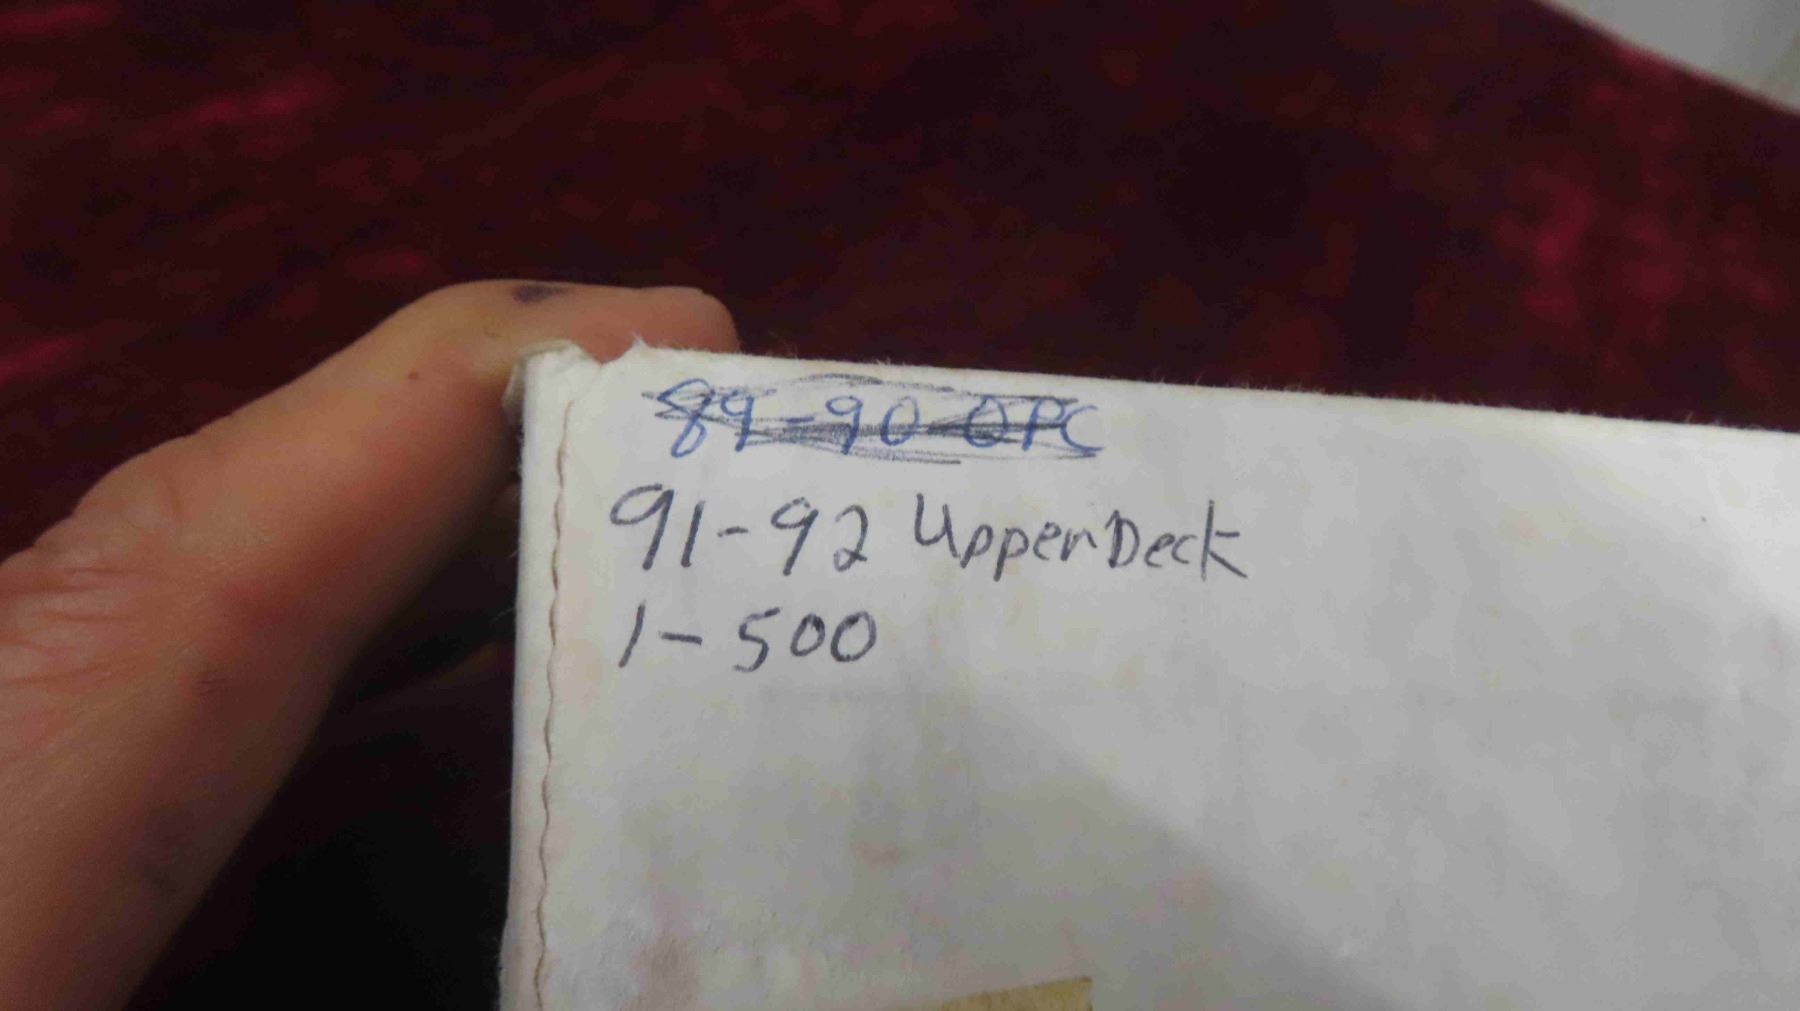 89-90 OPC
91-92 Upper Deck
1-500